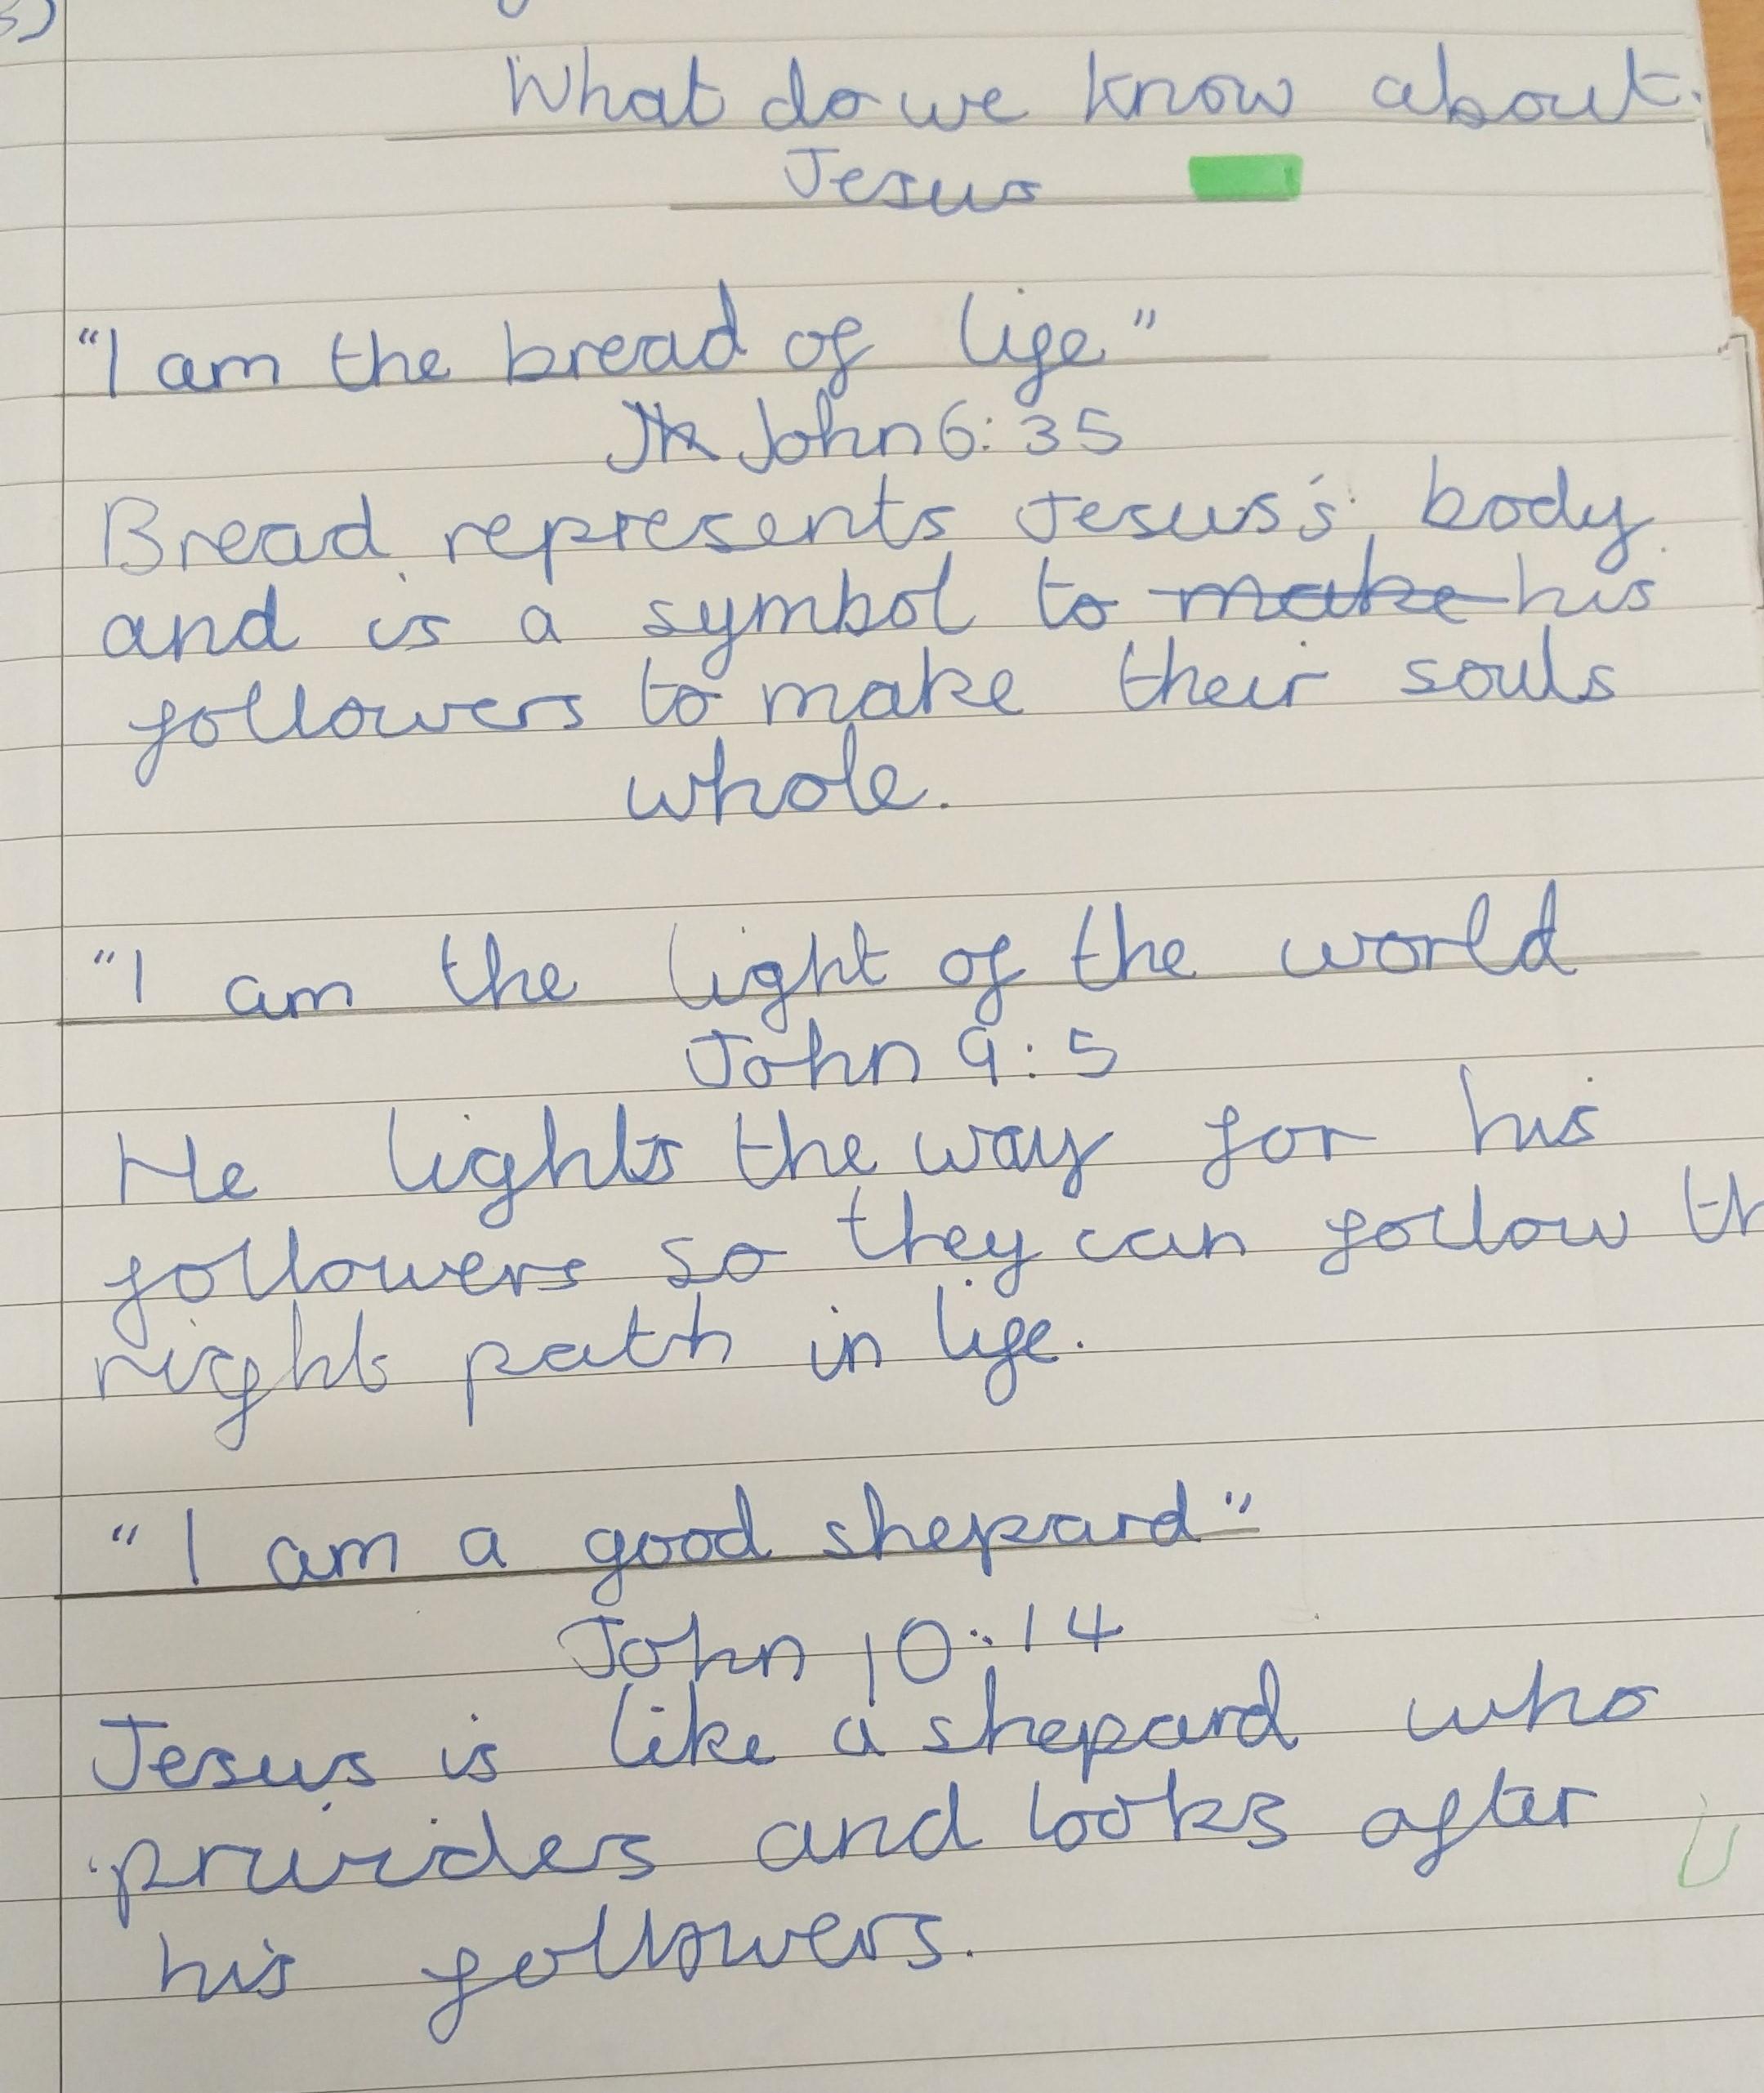 What do we know about.
Jesus
"I am the bread of life"
John 6:35
Bread represents Jesus's body
and is a symbol to make his
followers to make their souls
whole.
"I am the light of the world
John 9:5
He lights the way for his
followers so they can follow th
right path in life.
"I am a good shepard"
John 10:14
Jesus is like a shepard who
provides and looks after
his followers.